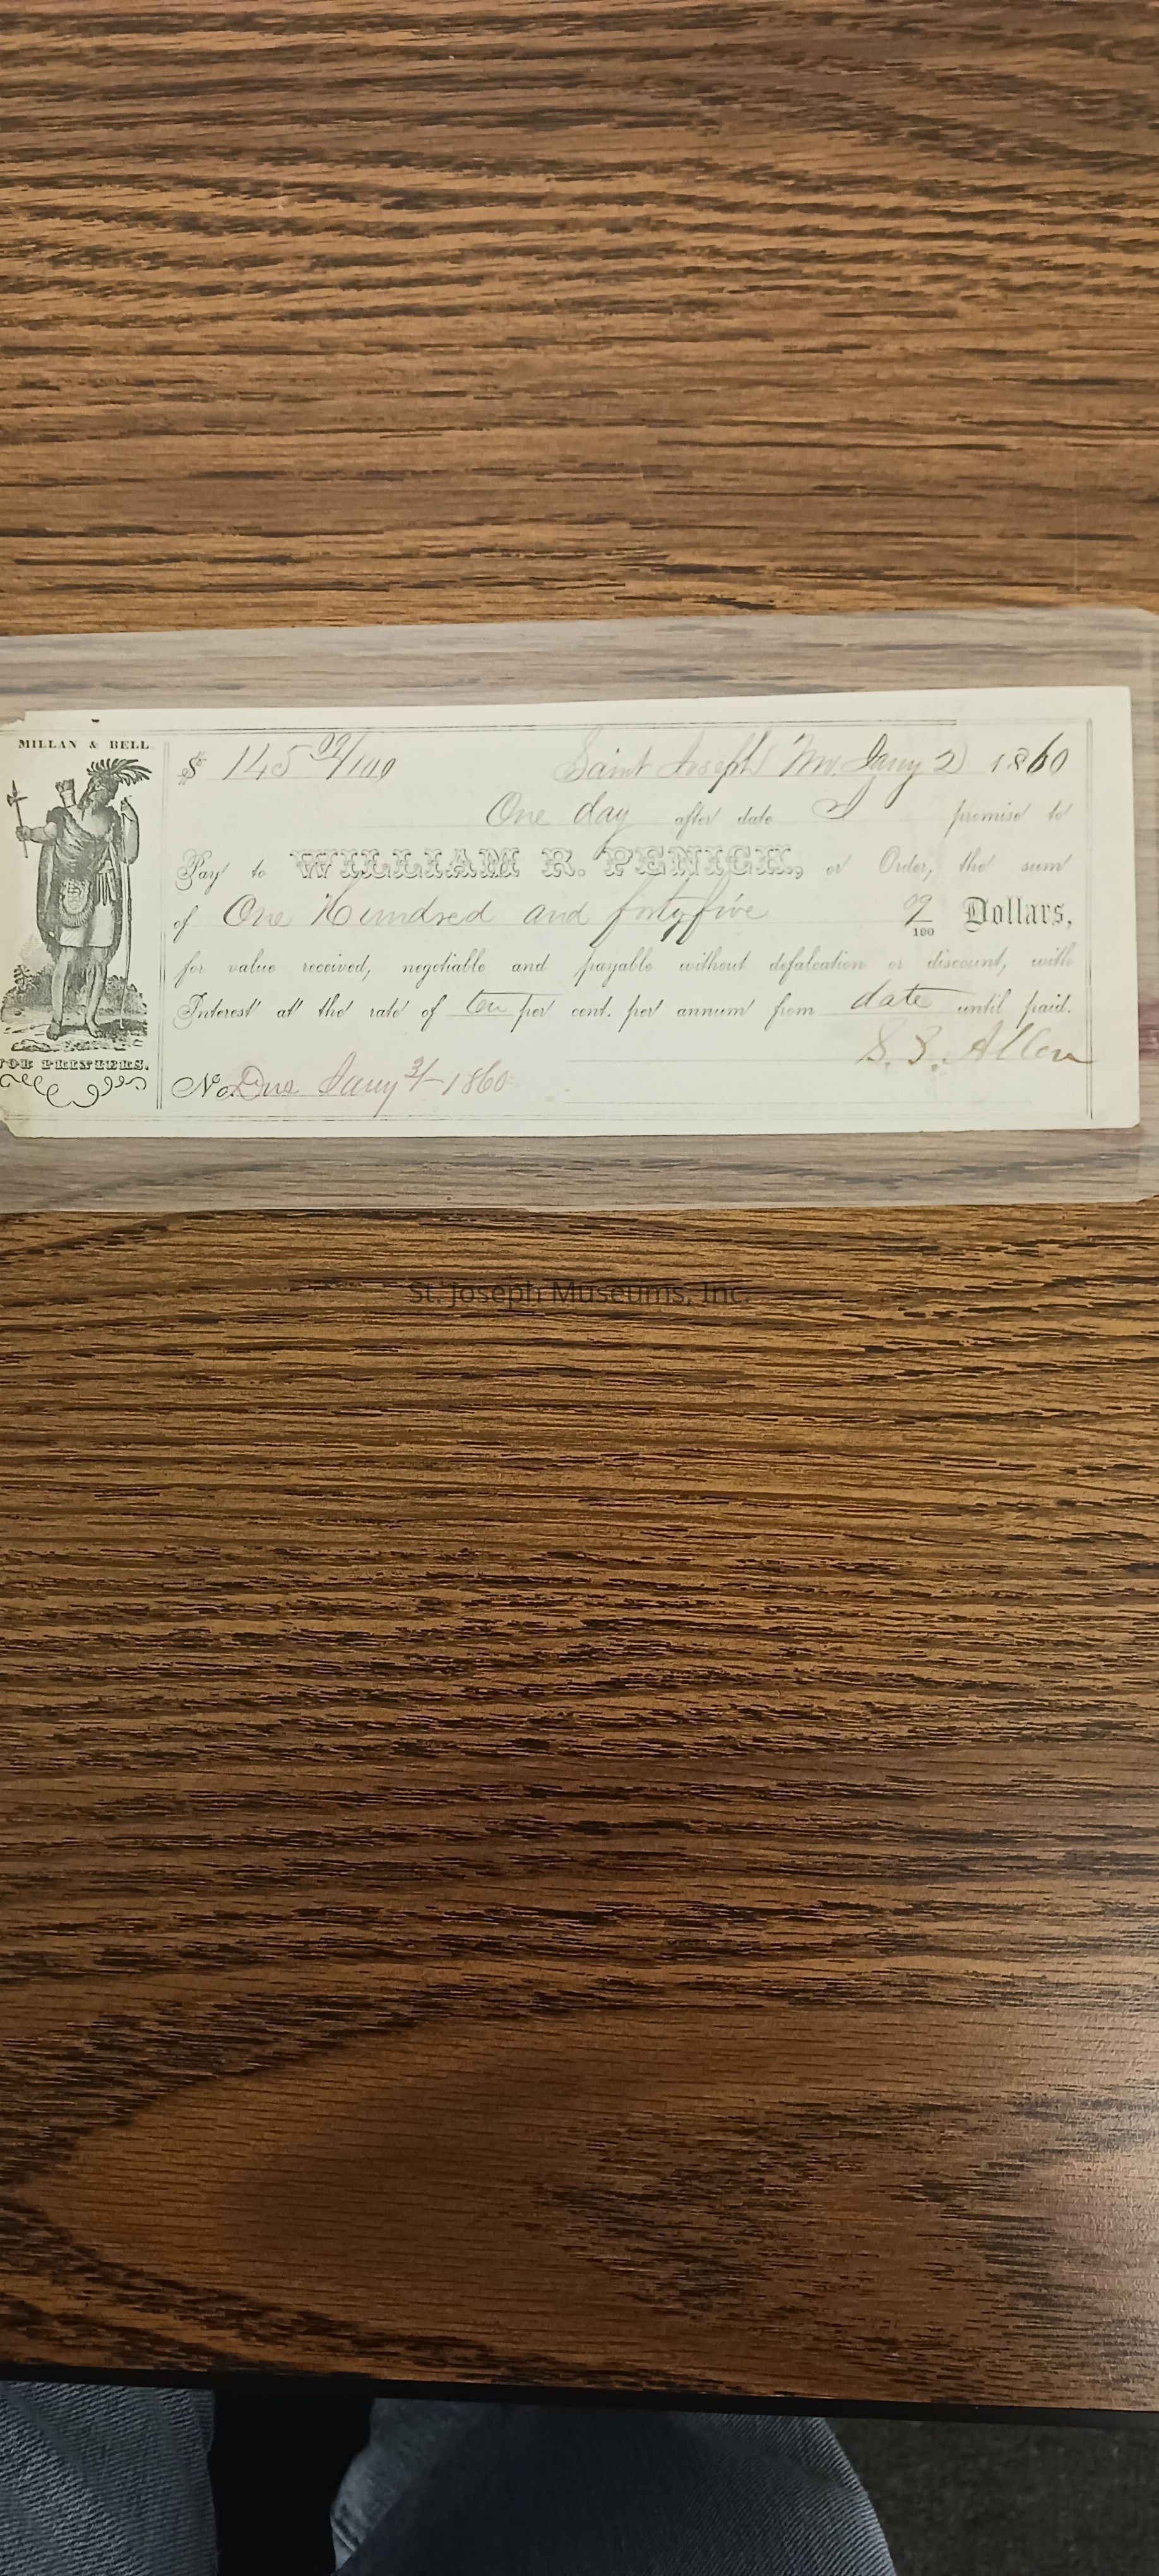 MILLAN & BELL
$ 145 09/100 Saint Joseph Mo. Jany 2 1860
One day after date I promise to
Pay to WILLIAM R. PENICK, or Order, the sum
of One Hundred and forty five 09/100 Dollars,
for value received, negotiable and payable without defalcation or discount, with
Interest at the rate of ten per cent. per annum from date until paid.
S. S. Allen
JOB PRINTERS.
No. Due Jany 3/ 1860
St. Joseph Museums, Inc.